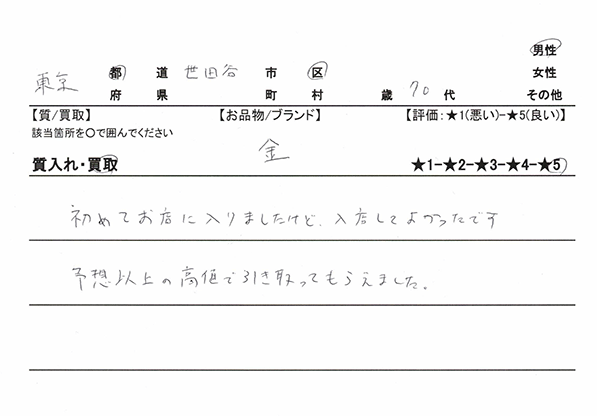 男性
東京 都 道 世田谷 市 区 女性
府 県 町 村 歳 70 代 その他
【質/買取】 【お品物/ブランド】 【評価:★1(悪い)-★5(良い)】
該当箇所を〇で囲んでください
質入れ・買取 金 ★1-★2-★3-★4-★5
初めてお店に入りましたけど、入店してよかったです
予想以上の高値で引き取ってもらえました。